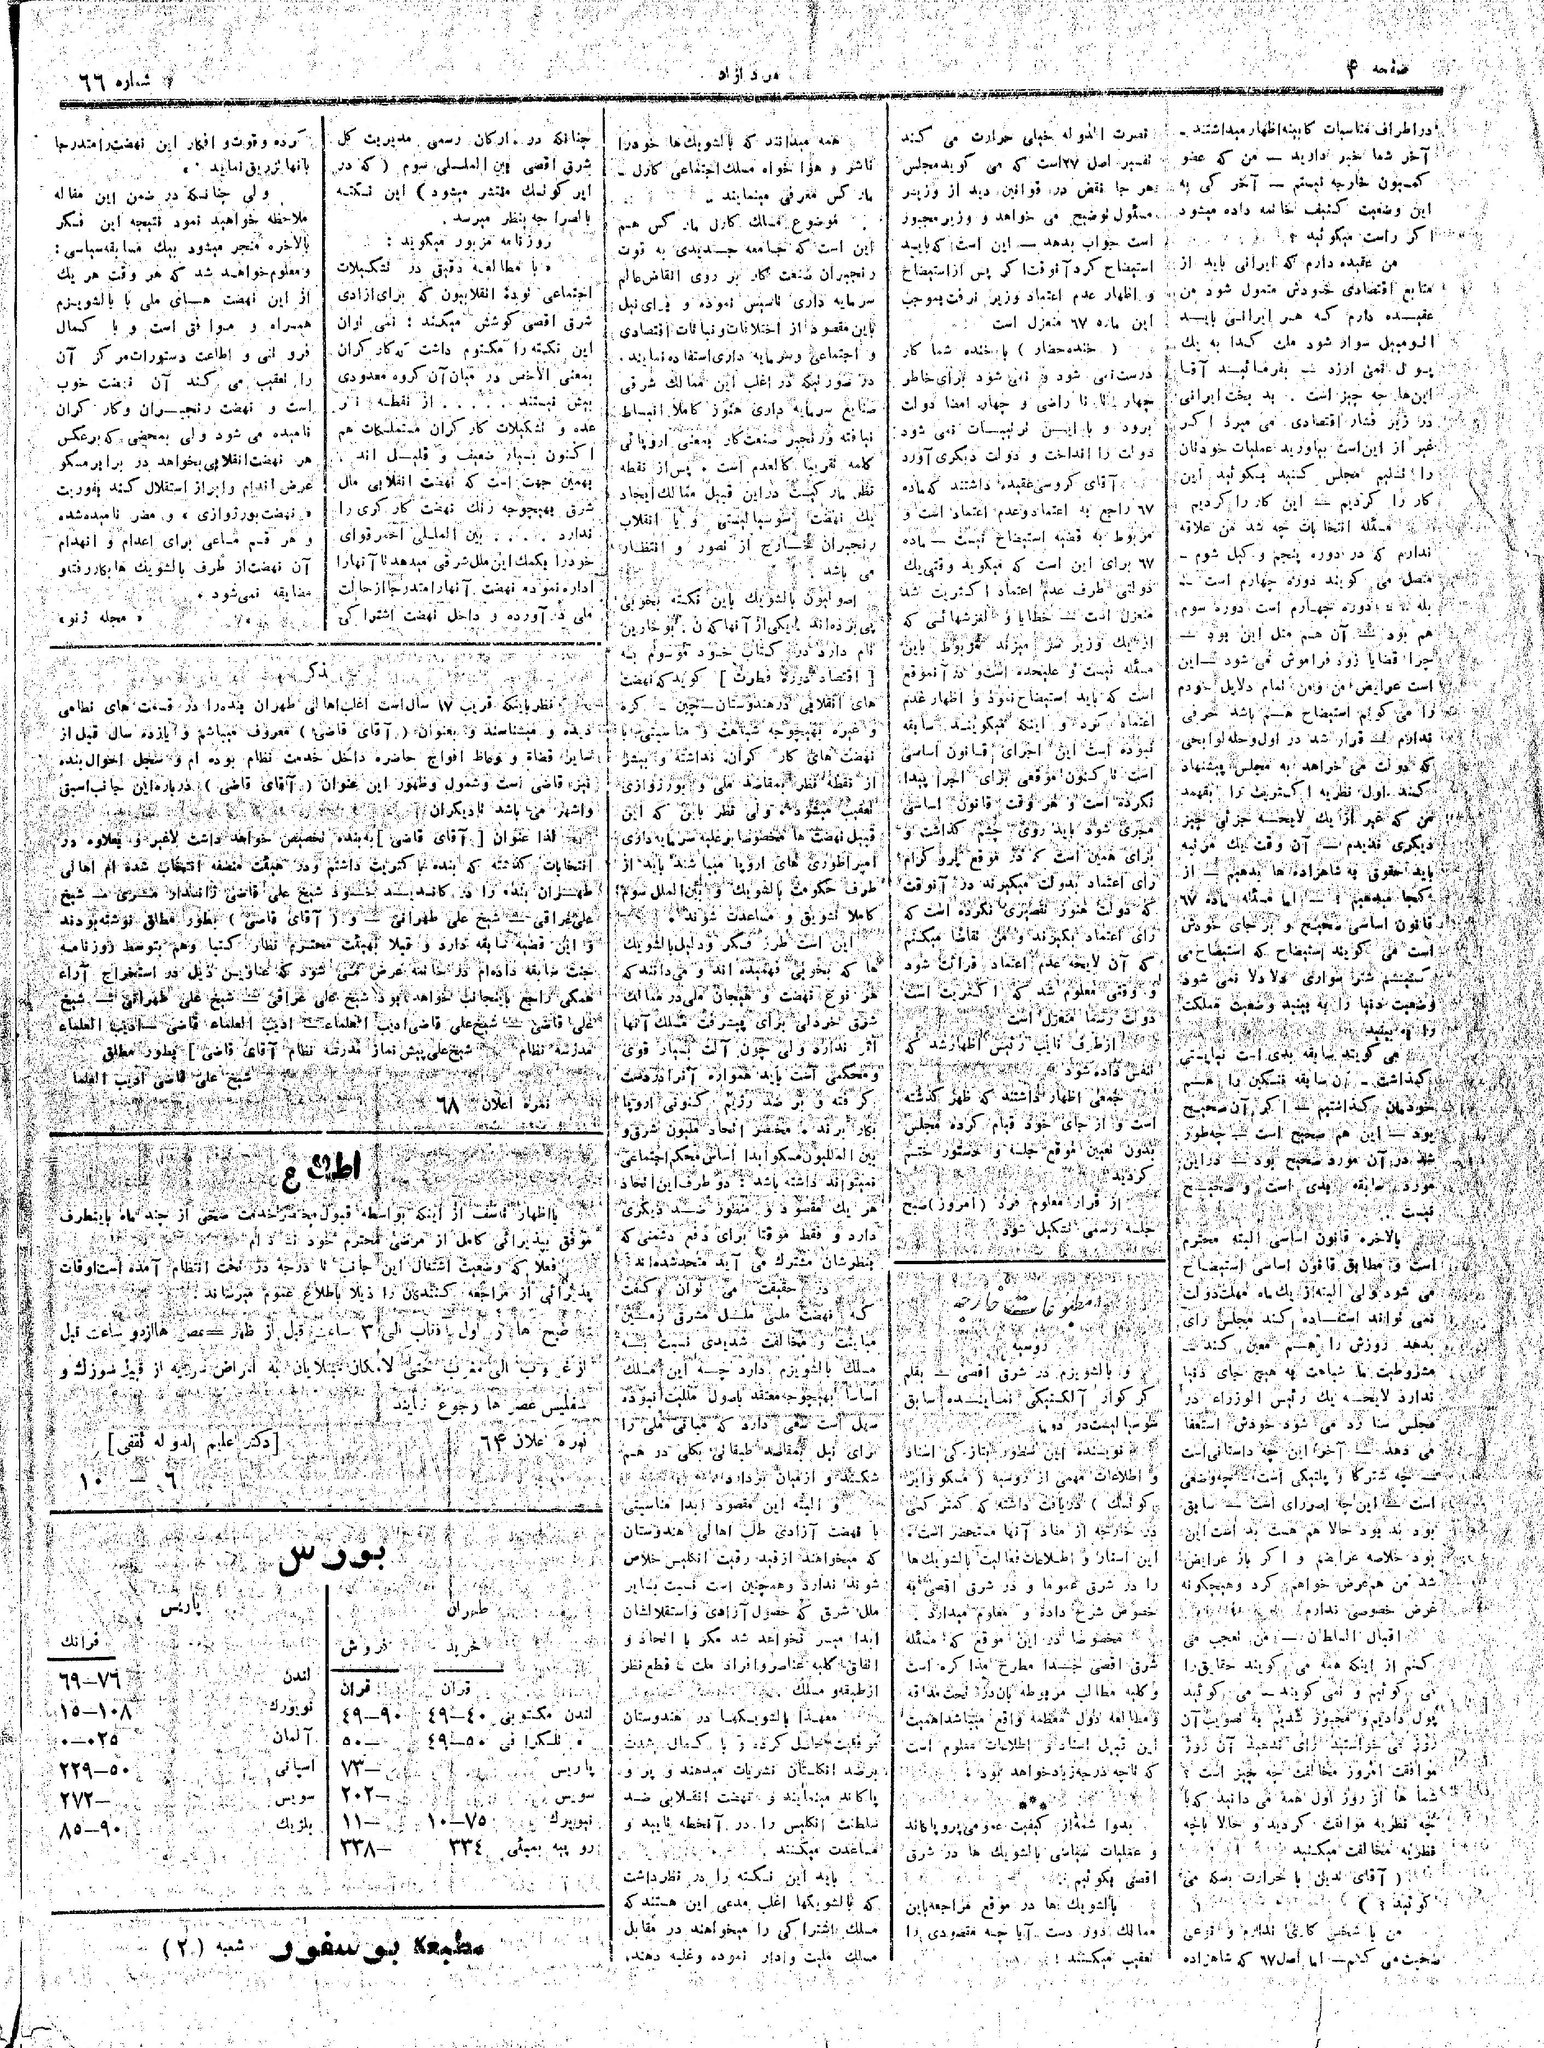 صفحه ۴
مرد آزاد
شماره ۶۶
در اطراف مناسبات کابینه اظهار میداشتند ـ
آخر شما خبر دارید — من که عضو
کمسیون خارجه نیستم — آخر کی به
این وضعیت کثیف خاتمه داده میشود
اگر راست میگوئید ؟
من عقیده دارم که ایرانی باید از
منابع اقتصادی خودش متمول شود من
عقیده دارم که هر ایرانی باید
اتومبیل سوار شود ملت گدا به یک
پول نمی ارزد بفرمائید آقا
این‌ها چه چیز است . بدبخت ایرانی
در زیر فشار اقتصادی می میرد اگر
غیر از این است بیاورید عملیات خودتان
را تسلیم مجلس کنید بگوئید این
کار را کردیم — این کار را کردیم
مسئله انتخابات چه شد من علاقه
ندارم که در دوره پنجم وکیل شوم ـ
متصل می گویند دوره چهارم است —
بله دوره چهارم است دوره سوم
هم بود آن هم مثل این بود —
چرا قضایا زود فراموش می شود — این
است عرایض من و من تمام دلایل خودم
را می گویم استیضاح هم باشد حرفی
ندارم — قرار شد در اول وهله لوایحی
که دولت می خواهد به مجلس پیشنهاد
کند اول نظریه اکثریت را بفهمد
من که غیر از یک لایحه جزئی چیز
دیگری ندیدم — آن وقت یک مرتبه
باید حقوق به شاهزاده ها بدهیم — از
کجا میدهیم ؟ — اما مسئله ماده ۶۷
قانون اساسی صحیح و بر جای خودش
است می گویند استیضاح که استیضاح می
گفتیم شتر سواری دلا دلا نمی شود
وضعیت دنیا را به بینید وضعیت مملکت
را به بینید
می گویند سابقه بدی است نبایستی
گذاشت ـ این سابقه ننگین را هم
خودمان گذاشتیم — اگر آن صحیح
بود — این هم صحیح است — چه طور
شد در آن مورد صحیح بود — در این
مورد سابقه بدی است و صحیح
نیست ..
بالاخره قانون اساسی البته محترم
است و مطابق قانون اساسی استیضاح
می شود ولی البته از یک ماه مهلت دولت
نمی تواند استفاده کند مجلس رأی
بدهد روزش را هم معین کند —
مشروطیت ما شباهت به هیچ جای دنیا
ندارد لایحه یک رئیس الوزراء در
مجلس سنا رد می شود خودش استعفا
می دهد — آخر این چه داستانی است
— چه شترگاو پلنگی است — چه وضعی
است — این چه اصولی است — سابق
بود بد بود حالا هم هست بد است این
بود خلاصه عرایضم و اگر باز عرایض
شد من هم عرض خواهم کرد و هیچگونه
غرض خصوصی ندارم
اقبال السلطان — من تعجب می
کنم از اینکه همه می گویند حقایق را
می گوئیم و نمی گویند — می گوئید
پول دادیم و مجبور شدیم به تصویب آن
روز می خواستید رأی ندهید آن روز
موافقت امروز مخالفت چه چیز است ؟
شما ها از روز اول همه می دانید که با
چه نظریه موافقت کردید و حالا با چه
نظریه مخالفت میکنید
( آقای تدین با حرارت بسکه می
گوئید ؟ )
من با شخص کاری ندارم و نوعی
صحبت می کنم — اما اصل ۶۷ که شاهزاده
نصرت الدوله خیلی حرارت می کنند
تفسیر اصل ۲۷ است که می گوید مجلس
هر جا نقض در قوانین دید از وزیر
مسئول توضیح می خواهد و وزیر مجبور
است جواب بدهد — این است که باید
استیضاح کرد آنوقت اگر پس از استیضاح
و اظهار عدم اعتماد وزیر نرفت بموجب
این ماده ۶۷ منعزل است
( خنده حضار ) با خنده شما کار
درست نمی شود و نمی شود برای خاطر
چهار تا نا راضی و چهار امضا دولت
برود و با این ترتیبات نمی شود
دولت را انداخت و دولت دیگری آورد
آقای کروسی عقیده داشتند که ماده
۶۷ راجع به اعتماد و عدم اعتماد است و
مربوط به قضیه استیضاح نیست — ماده
۶۷ برای این است که میگوید وقتی یک
دولتی طرف عدم اعتماد اکثریت شد
منعزل است — خطایا و لغزشهائی که
از یک وزیر سر میزند مربوط باین
مسئله نیست و علیحده است و در آنموقع
است که باید استیضاح نمود و اظهار عدم
اعتماد کرد و اینکه میگویند سابقه
نبوده است این اجرای قانون اساسی
است تا کنون موقعی برای اجرا پیدا
نکرده است و هر وقت قانون اساسی
مجری شود باید روی چشم گذاشت و
برای همین است که در موقع پروگرام
رأی اعتماد بدولت میگیرند در آنوقت
که دولت هنوز تقصیری نکرده است که
رأی اعتماد بگیرند و من تقاضا میکنم
که آن لایحه عدم اعتماد قرائت شود
و وقتی معلوم شد که اکثریت است
دولت رسما منعزل است
از طرف نایب رئیس اظهار شد که
تنفس داده شود
جمعی اظهار داشتند که ظهر گذشته
است و از جای خود قیام کرده مجلس
بدون تعیین موقع جلسه و دستور ختم
گردید
از قرار معلوم فردا (امروز) صبح
جلسه رسمی تشکیل شود
مطبوعات خارجه
روسیه
و بالشویزم در شرق اقصی — بقلم
گرگوار آلکسینسکی نماینده سابق
سوسیالیست در دوما
نویسنده این سطور بتازگی اسناد
و اطلاعات مهمی از روسیه ( مسکو و ایر
کوتسک ) دریافت داشته که کمتر کسی
در خارجه از مفاد آنها مستحضر است .
این اسناد و اطلاعات فعالیت بالشویک‌ها
را در شرق عموما و در شرق اقصی به
خصوص شرح داده و معلوم میدارد .
مخصوصا در این موقع که مسئله
شرق اقصی جدا مطرح مذاکره است
و کلیه مطالب مربوطه بان در تحت مداقه
و مطالعه دول معظمه واقع میباشد اهمیت
این قبیل اسناد و اطلاعات معلوم است
که تا چه درجه زیاد خواهد بود .
***
بدوا شمه‌ای از کیفیت عمومی پروپاکاند
و عملیات سیاسی بالشویک ها در شرق
اقصی بگوئیم
بالشویک ها در موقع مراجعه باین
ممالک دور دست آیا چه مقصودی را
تعقیب میکنند ؟
همه میدانند که بالشویک‌ها خود را
ناشر و هوا خواه مسلک اجتماعی کارل ـ
مارکس معرفی مینمایند .
موضوع مسلک کارل مارکس هم
این است که جامعه جدیدی به قوت
رنجبران صنعت کار بر روی انقاض عالم
سرمایه داری تاسیس نموده و برای نیل
باین مقصود از اختلافات و تباینات اقتصادی
و اجتماعی و سرمایه داری استفاده نمایند .
در صورتیکه در اغلب این ممالک شرقی
صنایع سرمایه داری هنوز کاملا انبساط
نیافته و رنجبر صنعت کار بمعنی اروپائی
کلمه تقریبا کالعدم است . پس از نقطه
نظر مارکیست در این قبیل ممالک ایجاد
یک نهضت سوسیالیستی و یا انقلاب
رنجبران خارج از تصور و انتظار
می باشد .
اصولیون بالشویک باین نکته بخوبی
پی برده‌اند ! یکی از آنها که ن . بوخارین
نام دارد در کتاب خود موسوم به
[ اقتصاد دوره فطرت ] گوید که نهضت
های انقلابی در هندوستان — چین ـ کره
و غیره بهیچوجه شباهت و مناسبتی با
نهضت های کارگران نداشته و بیشتر
از نقطه نظر بمقاصد ملی و بورژوازی
تعقیب میشود . ولی نظر باین که این
قبیل نهضت ها مخصوصا بر علیه سرمایه داری
امپراطوری های اروپا میباشد باید از
طرف حکومت بالشویک و بین الملل سوم
کاملا تشویق و مساعدت شوند .
این است طرز فکر و دلیل بالشویک
ها که بخوبی فهمیده اند و می دانند که
هر نوع نهضت و هیجان ملی در ممالک
شرق خردلی برای پیشرفت مسلک آنها
اثر ندارد ولی چون آلت بسیار قوی
و محکمی است باید همواره آنرا در دست
گرفته و بر ضد رژیم کنونی اروپا
بکار برند . مختصر اتحاد ملیون شرق و
بین المللیون مسکو ابدا اساس محکم اجتماعی
نمیتواند داشته باشد ! دو طرف این اتحاد
هر یک مقصود و منظور ضد دیگری
دارد و فقط موقتا برای دفع دشمنی که
بنظرشان مشترک می آید متحد شده‌اند .
در حقیقت می توان گفت
که نهضت ملی ملل مشرق زمین
مباینت و مخالفت شدیدی نسبت به
مسلک بالشویزم دارد چه این مسلک
اساسا بهیچوجه معتقد باصول ملیت نبوده
سهل است سعی دارد که مبانی ملی را
برای نیل بمقاصد طبقاتی بکلی در هم
شکند و از میان بردارد .
و البته این مقصود ابدا مناسبتی
با نهضت آزادی طلب اهالی هندوستان
که میخواهند از قید رقیت انگلیس خلاص
شوند ندارد و همچنین است نسبت بسایر
ملل شرق که حصول آزادی و استقلالشان
ابدا میسر نخواهد شد مگر با اتحاد و
اتفاق کلیه عناصر و افراد ملت با قطع نظر
از طبقه و مسلک .
معهذا بالشویکها در هندوستان
موفقیت حاصل کرده و با کمال شدت
بر ضد انگلستان نشریات میدهند و پرو
پاکاند مینمایند و نهضت انقلابی ضد
سلطنت انگلیس را در آنخطه تایید و
مساعدت میکنند .
باید این نکته را در نظر داشت
که بالشویکها اغلب مدعی این هستند که
مسلک اشتراکی را میخواهند در مقابل
مسلک ملیت وادار نموده و غلبه دهند .
چنانکه در ارکان رسمی مدیریت کل
شرق اقصی بین المللی سوم ( که در
ایرکوتسک منتشر میشود ) این نکته
بالصراحه بنظر میرسد .
روزنامه مزبور میگوید :
« با مطالعه دقیق در تشکیلات
اجتماعی توده انقلابیون که برای آزادی
شرق اقصی کوشش میکنند ! نمی توان
این نکته را مکتوم داشت که کارگران
بمعنی الاخص در میان آن گروه معدودی
بیش نیستند ..... از نقطه نظر
عده و تشکیلات کارگران مستملکات هم
اکنون بسیار ضعیف و قلیل اند .
بهمین جهت است که نهضت انقلابی ملل
شرق بهیچوجه رنگ نهضت کارگری را
ندارد ..... بین المللی احمر قوای
خود را بکمک این ملل شرقی میدهد تا آنها را
اداره نموده نهضت آنها را متدرجا از حالت
ملی در آورده و داخل نهضت اشتراکی
کرده و قوت و افکار این نهضت را متدرجا
بانها تزریق نماید .»
ولی چنانکه در ضمن این مقاله
ملاحظه خواهید نمود نتیجه این فکر
بالاخره منجر میشود بیک مسابقه سیاسی :
و معلوم خواهد شد که هر وقت هر یک
از این نهضت های ملی با بالشویزم
همراه و موافق است و با کمال
فروتنی و اطاعت دستورات مرکز آن
را تعقیب می کند آن نهضت خوب
است و نهضت رنجبران و کارگران
نامیده می شود ولی بمحضی که برعکس
هر نهضت انقلابی بخواهد در برابر مسکو
عرض اندام و ابراز استقلال کند بفوریت
« نهضت بورژوازی » و مضر نامیده شده
و هر قسم مساعی برای اعدام و انهدام
آن نهضت از طرف بالشویک ها بکار رفته و
مضایقه نمی‌شود .
« مجله ژنو »
تذکر
نظر باینکه قریب ۱۷ سال است اغلب اهالی طهران بنده را در قسمت های نظامی
دیده و میشناسند و بعنوان ( آقای قاضی ) معروف میباشم و یازده سال قبل از
سایر قضاة و وعاظ افواج حاضره داخل خدمت نظام بوده ام و سجل احوال بنده
نیز قاضی است و شمول و ظهور این عنوان ( آقای قاضی ) درباره این جانب اسبق
و اشهر می باشد تا دیگران
لذا عنوان [ آقای قاضی ] به بنده تخصیص خواهد داشت لاغیر و بعلاوه در
انتخابات گذشته که بنده با کثریت داشتم و در هیئت منصفه انتخاب شده ام اهالی
طهران بنده را در کاندید خود شیخ علی قاضی ژاندارمری — شیخ
علی عراقی — شیخ علی طهرانی — و ( آقای قاضی ) بطور مطلق نوشته بودند
و این قضیه سابقه دارد و قبلا بهیئت محترم نظار کتبا و هم بتوسط روزنامه
جنت سابقه داده‌ام در خاتمه عرض می شود که عناوین ذیل در استخراج آراء
همگی راجع باینجانب خواهد بود شیخ علی عراقی — شیخ علی طهرانی — شیخ
علی قاضی — شیخ علی قاضی ادیب العلماء — ادیب العلماء قاضی — ادیب العلماء
مدرسه نظام — شیخ علی پیش نماز مدرسه نظام آقای قاضی ] بطور مطلق
شیخ علی قاضی ادیب العلما
نمره اعلان ۶۸
اطلاع
با اظهار تاسف از اینکه بواسطه قبول خدمت صحی از چند ماه باینطرف
موفق بپذیرائی کامل از مرضی محترم خود نشده ام
فعلا که وضعیت اشتغال این جانب تا درجه در تحت انتظام آمده است اوقات
پذیرائی از مراجعه کنندگان را ذیلا باطلاع عموم میرساند :
صبح ها از اول آفتاب الی ۳ ساعت قبل از ظهر — عصر ها از دو ساعت قبل
از غروب الی مغرب حتی الامکان مبتلایان به امراض از قبیل سوزنک و
سفلیس عصر ها رجوع نمایند
نمره اعلان ۶۴
[دکتر علیم الدوله ثقفی]
۶ — ۱۰
بورس
طهران
خرید فروش
قران قران
لندن مکتوبی ۴۰—۴۹ ۹۰—۴۹
« تلگرافی ۵۰—۴۹ —۵۰
پاریس —۷۳
سویس —۲۰۲
نیویورک ۷۵—۱۰ —۱۱
روپیه بمبئی ۳۳۴ —۳۳۸
پاریس
فرانک
لندن ۷۶—۶۹
نویورک ۱۰۸—۱۵
آلمان ۰۲۵—۰
اسپانی ۵۰—۲۲۹
سویس —۲۷۲
بلژیک ۹۰—۸۵
مطبعه بوسفور شعبه (۲)